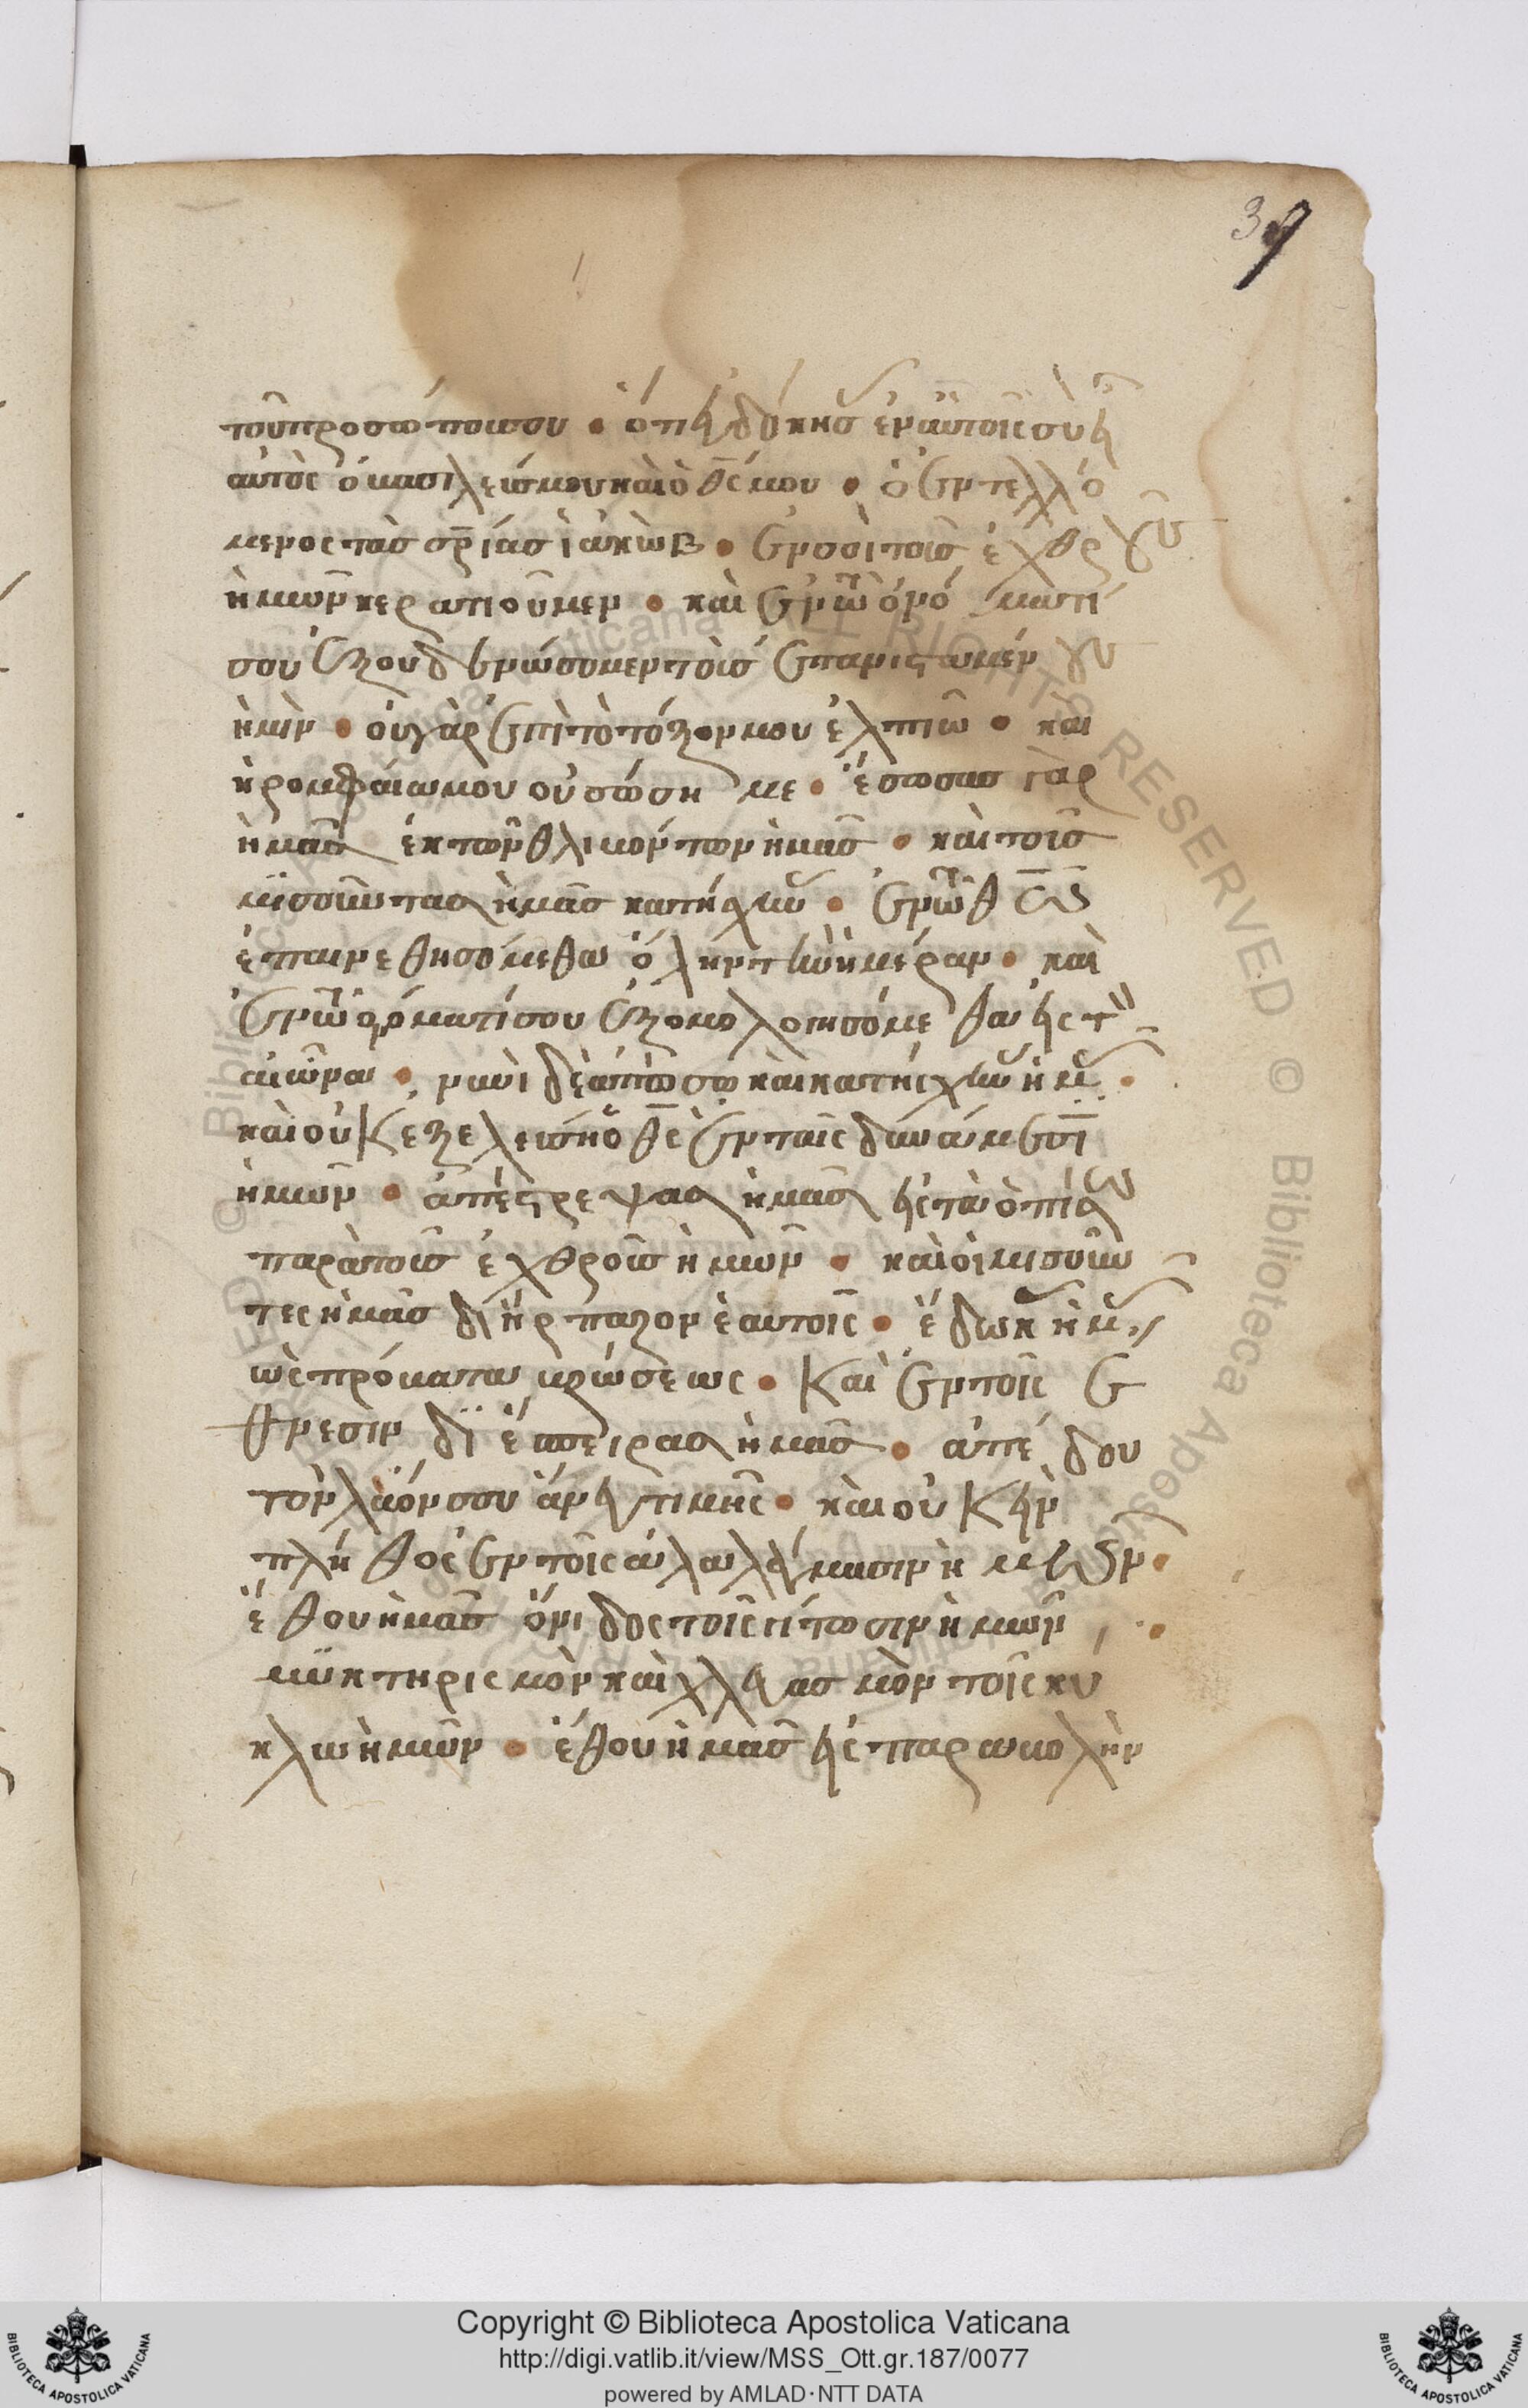 39
τοῦ προσώπου σου · ὅτι εὐδόκησ ἐν αὐτοῖς σὺ εἶ
αὐτὸς ὁ βασιλεύσ μου καὶ ὁ θς μου · ὁ ἐντελλό
μενος τὰσ σρίασ ἰακὼβ · ἐν σοὶ τοὺσ ἐχθρ
ἡμῶν κερατιοῦμεν · καὶ ἐν τῶ ὀνόματί
σου ἐξουδενώσομεν τοὺσ ἐπανισταμέν
ἡμῖν · οὐ γὰρ ἐπὶ τὸ τόξον μου ἐλπιῶ · καὶ
ἡ ρομφαία μου οὐ σώση με · ἔσωσας γὰρ
ἡμᾶσ ἐκ τῶν θλιβόντων ἡμᾶσ · καὶ τοὺσ
μισοῦντας ἡμᾶσ κατήσχυν · ἐν τῶ θω
ἐπαινεθησόμεθα ὅλην τὴν ἡμέραν · καὶ
ἐν τῶ ὀνόματί σου ἐξομολογησόμεθα εἰς τ
αἰῶνα · νυνὶ δὲ ἀπώσω καὶ κατήσχυν ἡμ ·
καὶ οὐκ ἐξελεύση ὁ θς ἐν ταῖς δυνάμεσι
ἡμῶν · ἀπέστρεψας ἡμᾶς εἰς τὰ ὀπίσω
παρὰ τοὺσ ἐχθροὺσ ἡμῶν · καὶ οἱ μισοῦν
τες ἡμᾶσ διήρπαζον ἑαυτοῖς · ἔδωκ ἡμ
ὡς πρόβατα βρώσεως · Καὶ ἐν τοῖς ἔ
θνεσιν διέσπειρας ἡμᾶσ · ἀπέδου
τὸν λαόν σου ἄνευ τιμῆς · καὶ οὐκ ἦν
πλῆθος ἐν τοῖς ἀλαλάγμασιν ἡμῶν ·
ἔθου ἡμᾶσ ὄνιδος τοῖς γείτωσιν ἡμῶν ·
μυκτηρισμὸν καὶ χλευασμὸν τοῖς κύ
κλω ἡμῶν · ἔθου ἡμᾶσ εἰς παραβολὴν
Copyright © Biblioteca Apostolica Vaticana
http://digi.vatlib.it/view/MSS_Ott.gr.187/0077
powered by AMLAD·NTT DATA